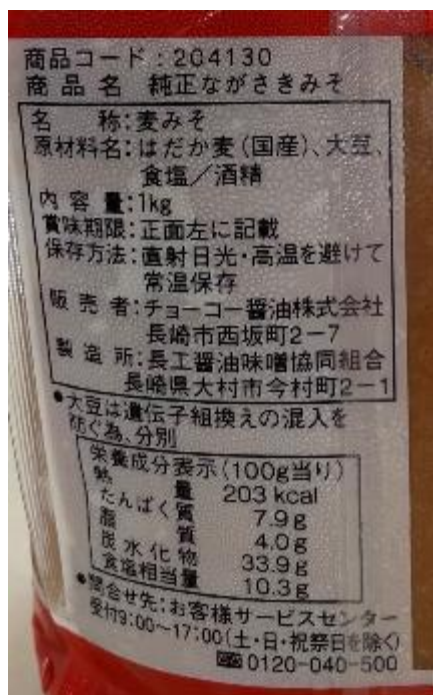 商品コード:204130
商品名 純正ながさきみそ
名称:麦みそ
原材料名:はだか麦(国産)、大豆、
食塩/酒精
内容量:1kg
賞味期限:正面左に記載
保存方法:直射日光・高温を避けて
常温保存
販売者:チョーコー醤油株式会社
長崎市西坂町2-7
製造所:長工醤油味噌協同組合
長崎県大村市今村町2-1
●大豆は遺伝子組換えの混入を
防ぐ為、分別
栄養成分表示(100g当り)
熱量 203 kcal
たんぱく質 7.9g
脂質 4.0g
炭水化物 33.9g
食塩相当量 10.3g
●問合せ先:お客様サービスセンター
受付9:00~17:00(土・日・祝祭日を除く)
0120-040-500